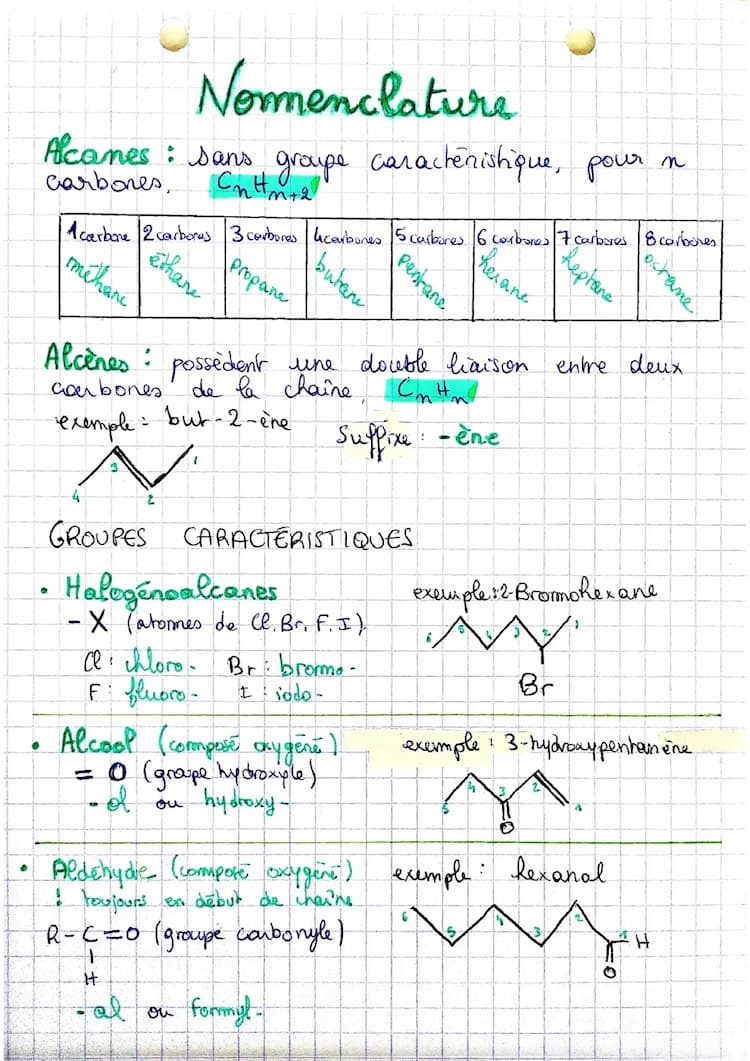 Nomenclature
Alcanes : sans groupe caractéristique, pour n
carbones, CnHn+2
1 carbone 2 carbones 3 carbones 4 carbones 5 carbones 6 carbones 7 carbones 8 carbones
méthane éthane propane butane pentane hexane heptane octane
Alcènes : possèdent une double liaison entre deux
carbones de la chaîne, CnHn
exemple : but-2-ène
Suffixe : -ène
1 2 3 4
GROUPES CARACTÉRISTIQUES
• Halogénoalcanes
- X (atomes de Cl, Br, F, I)
Cl : chloro- Br : bromo-
F : fluoro- I : iodo-
exemple : 2-Bromohexane
6 5 4 3 2 1
Br
• Alcool (composé oxygéné)
= O (groupe hydroxyle)
- ol ou hydroxy-
exemple : 3-hydroxypentanène
5 4 3 2 1
O
• Aldéhyde (composé oxygéné)
! toujours en début de chaîne
R-C=O (groupe carbonyle)
H
- al ou formyl-
exemple : hexanal
6 5 4 3 2 1 H
O